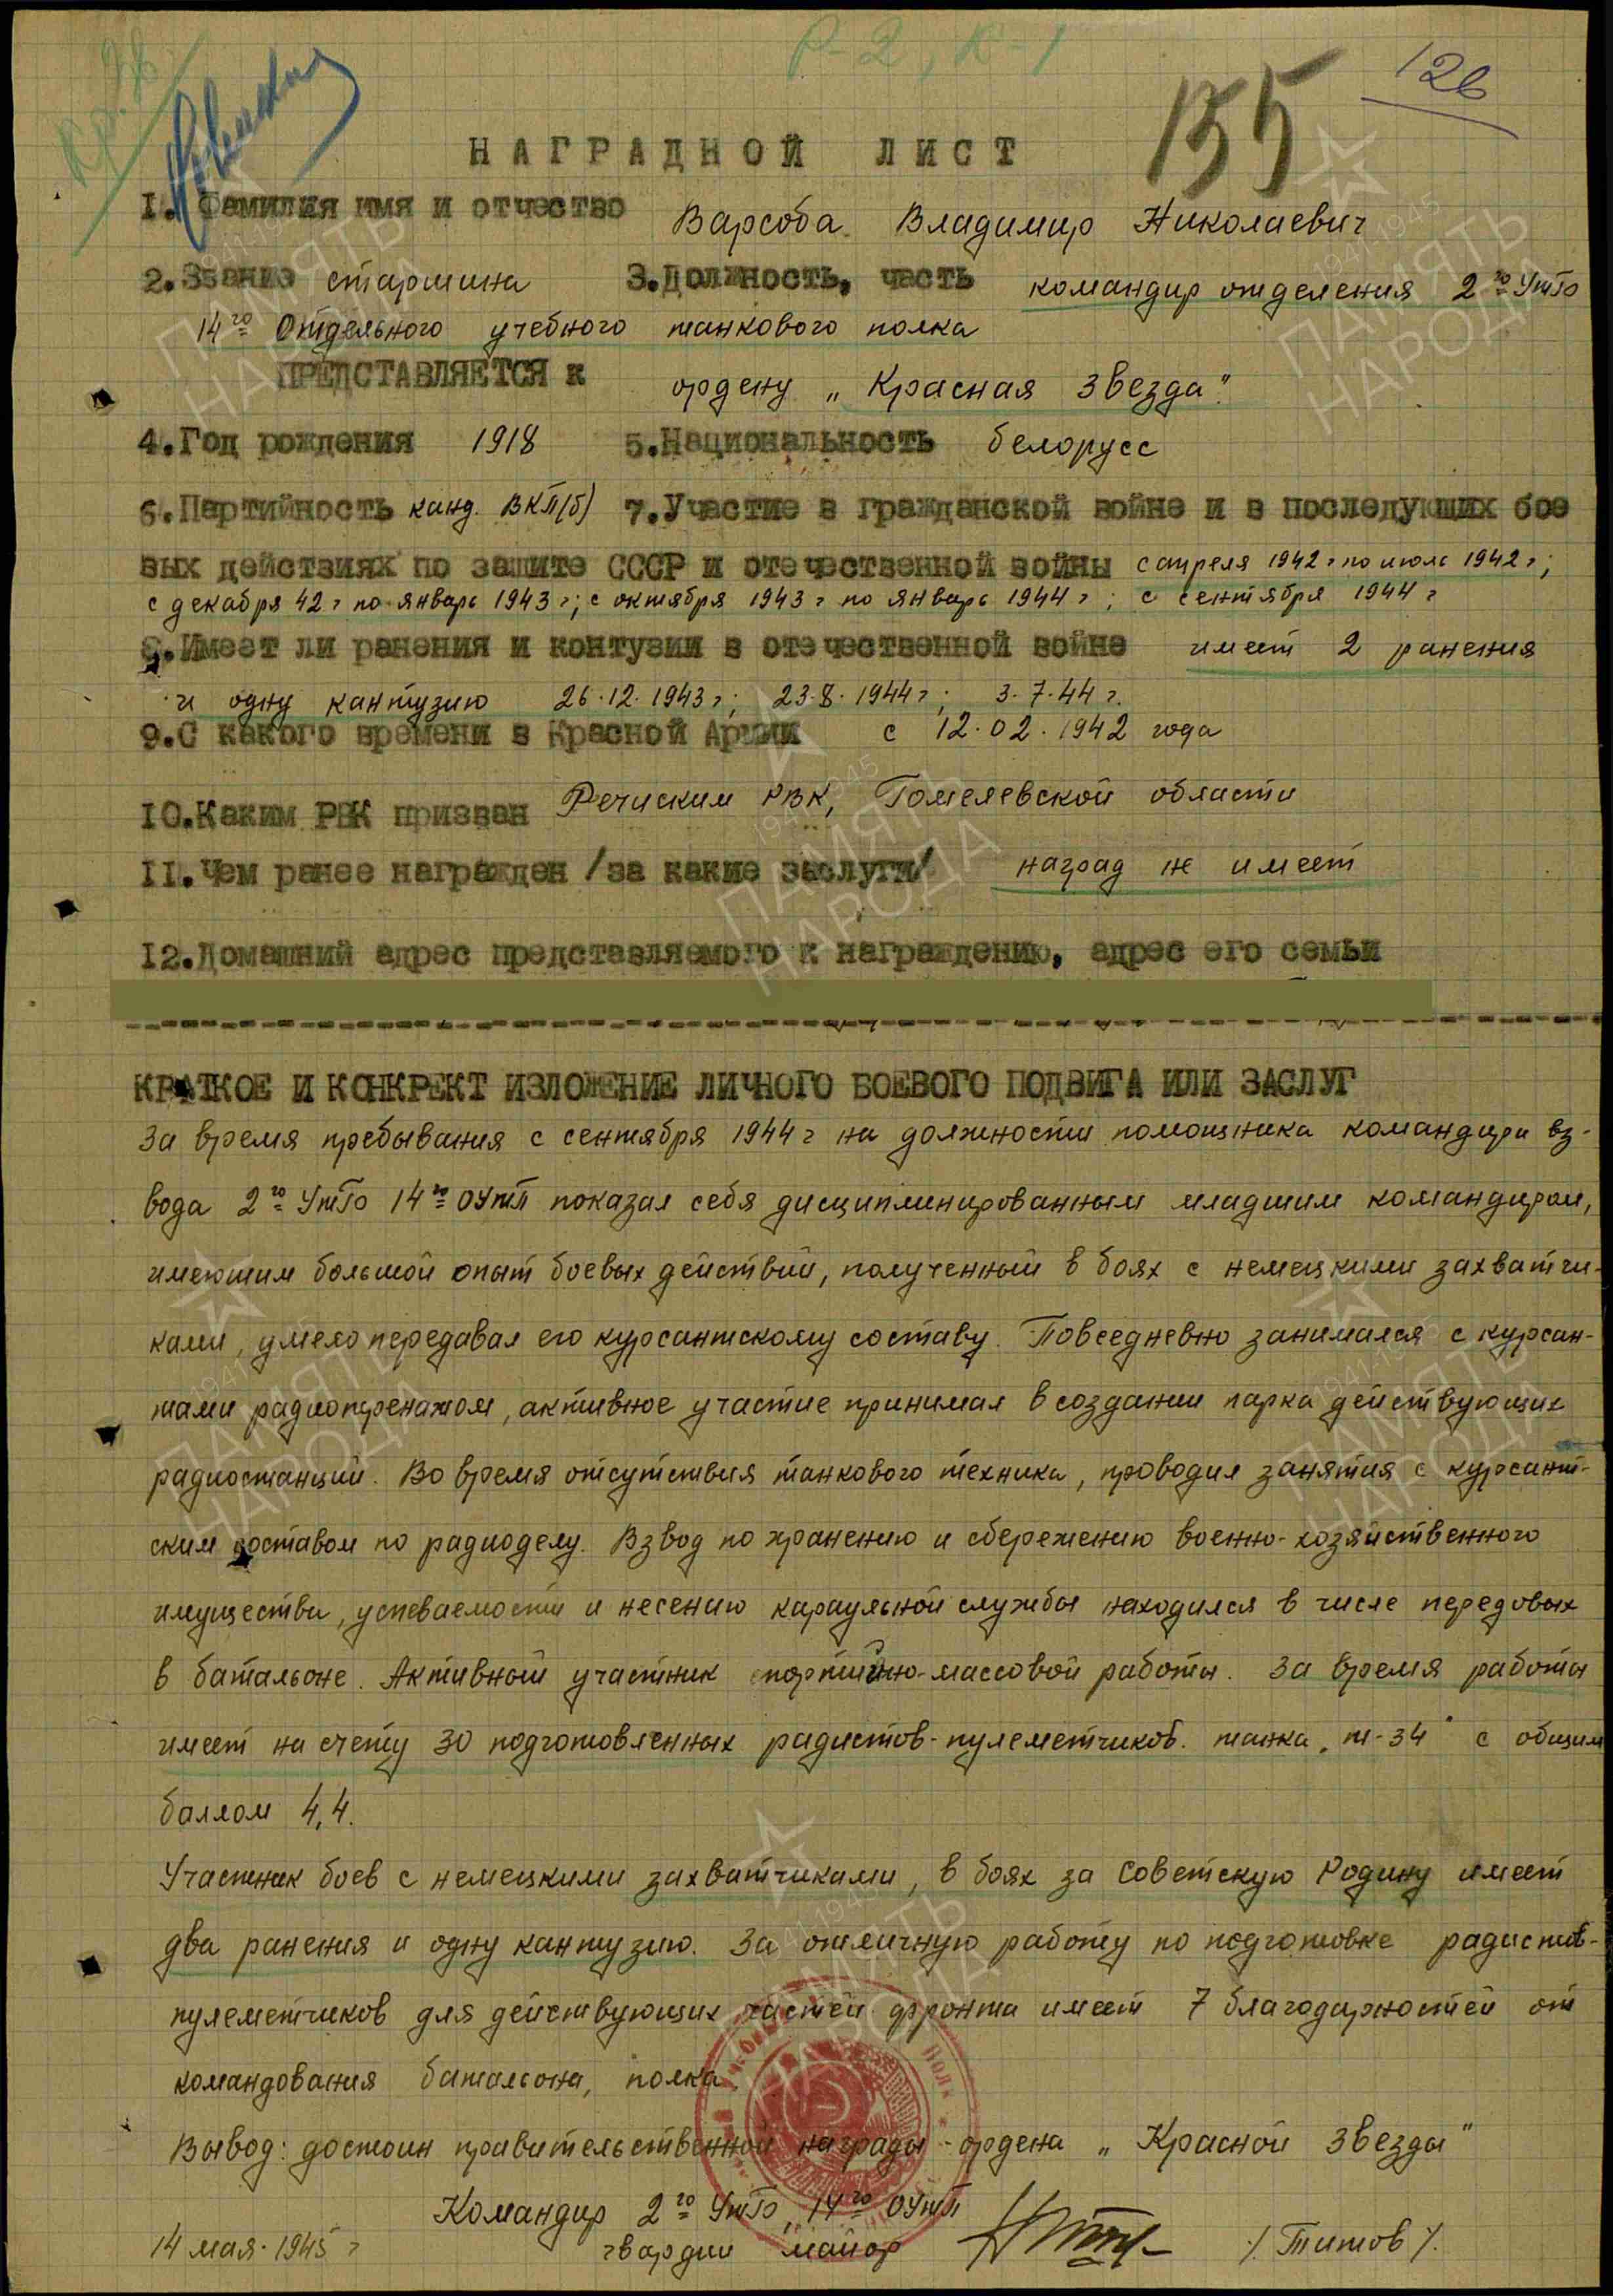 Р-2, К-1
126
155
НАГРАДНОЙ ЛИСТ
1. Фамилия имя и отчество Варсоба Владимир Николаевич
2. Звание старшина 3. Должность, часть командир отделения 2го УтБ
14го Отдельного учебного танкового полка
ПРЕДСТАВЛЯЕТСЯ к ордену „Красная Звезда".
4. Год рождения 1918 5. Национальность белорусс
6. Партийность канд. ВКП(б) 7. Участие в гражданской войне и в последующих бое
вых действиях по защите СССР и отечественной войны с апреля 1942 г по июль 1942 г;
с декабря 42 г по январь 1943 г; с октября 1943 г по январь 1944 г; с сентября 1944 г
8. Имеет ли ранения и контузии в отечественной войне имеет 2 ранения
и одну кантузию 26.12.1943 г; 23.8.1944 г; 3.7.44 г.
9. С какого времени в Красной Армии с 12.02.1942 года
10. Каким РВК призван Речиским РВК, Гомелевской области
11. Чем ранее награжден /за какие заслуги/ наград не имеет
12. Домашний адрес представляемого к награждению, адрес его семьи
КРАТКОЕ И КОНКРЕКТ ИЗЛОЖЕНИЕ ЛИЧНОГО БОЕВОГО ПОДВИГА ИЛИ ЗАСЛУГ
За время пребывания с сентября 1944 г на должности помощника командира вз-
вода 2го УтБ 14го ОУТП показал себя дисциплинированным младшим командиром,
имеюшим большой опыт боевых действий, полученный в боях с немецкими захватчи-
ками, умело передавал его курсантскому составу. Повседневно занимался с курсан-
тами радиотренажом, активное участие принимал в создании парка действующих
радиостанций. Во время отсутствия танкового техника, проводил занятия с курсант-
ским составом по радиоделу. Взвод по хранению и сбережению военно-хозяйственного
имущества, успеваемости и несению караульной службы находился в числе передовых
в батальоне. Активный участник партийно-массовой работы. За время работы
имеет на счету 30 подготовленных радистов-пулеметчиков. танка „т-34" с общим
баллом 4,4.
Участник боев с немецкими захватчиками, в боях за Советскую Родину имеет
два ранения и одну кантузию. За отличную работу по подготовке радистов-
пулеметчиков для действующих частей фронта имеет 7 благодарностей от
командования батальона, полка.
Вывод: достоин правительственной награды - ордена „Красной Звезды"
Командир 2го УтБ, 14го ОУТП
14 мая 1945 г гвардии майор /Титов/.
ПАМЯТЬ НАРОДА
1941-1945